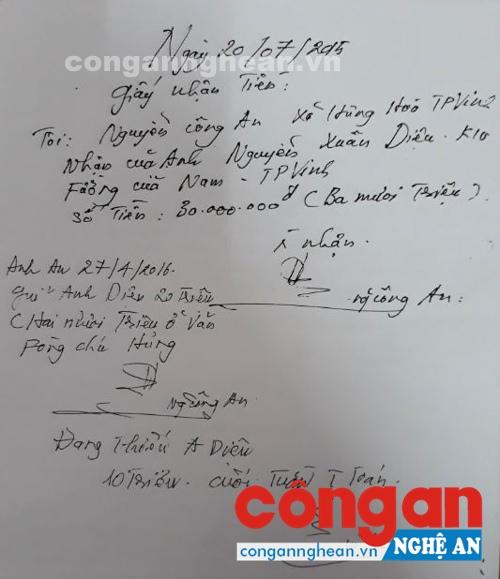 Ngày 20/07/2015
congannghean.vn
giấy nhận Tiền:
Tôi: Nguyễn công An xã Hùng Hoà TPVinh
Nhận của Anh Nguyễn Xuân Diệu. K10
Fường cửa Nam - TPVinh
Số Tiền: 30.000.000đ (Ba mươi Triệu).
nhận.
Anh An 27/4/2016.
Anh Diệu 20 Triệu
ng công An:
(Hai mươi Triệu ở Văn
Fòng chú Hùng
ng công An
Đang Thiếu A Diệu
10 Triệu. cuối Tuần T Toán.
congan
congannghean.vn NGHỆ AN